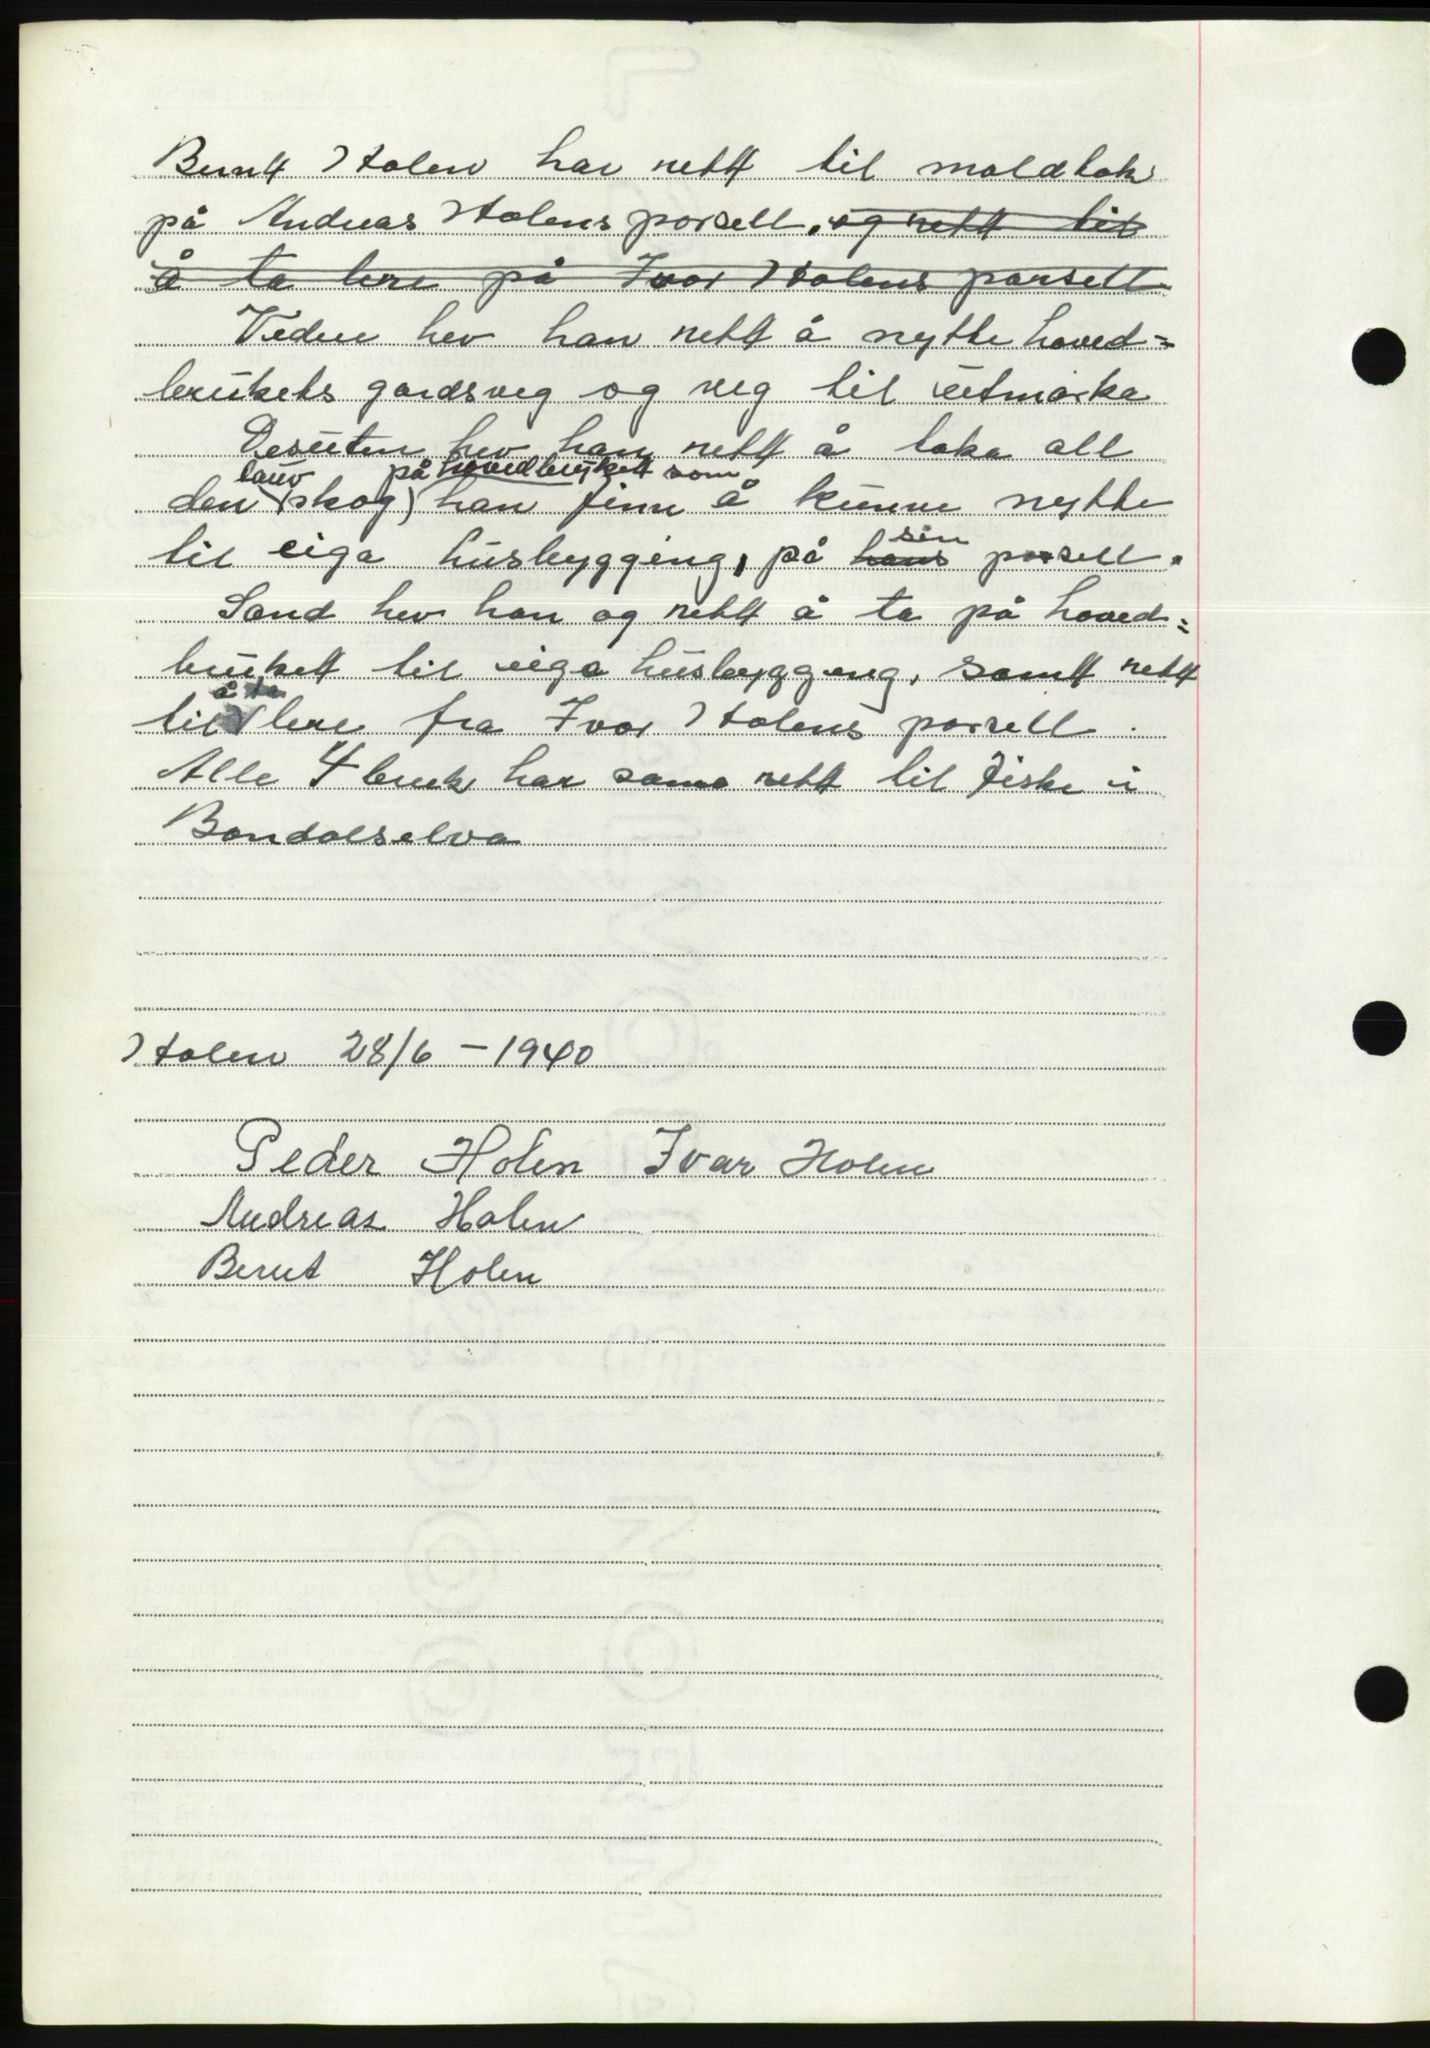 Bernt Holen har rett til moldtak
på Andreas Holens parsell, og rett til
å ta lere på Ivar Holens parsell.
Videre hev han rett å nytte hoved=
brukets gardsveg og veg til utmarka
Desuten hev han rett å taka all
lauv på hovedbruket som
den (skog) han finn å kunne nytte
sin
til eiga husbygging, på hans parsell.
Sand hev han og rett å ta på hoved=
bruket til eiga husbygging, samt rett
å ta
til lere fra Ivar Holens parsell.
Alle 4 bruk har same rett til fiske i
Bondalselva
Holen 28/6 - 1940
Peder Holen Ivar Holen
Andreas Holen
Bernt Holen